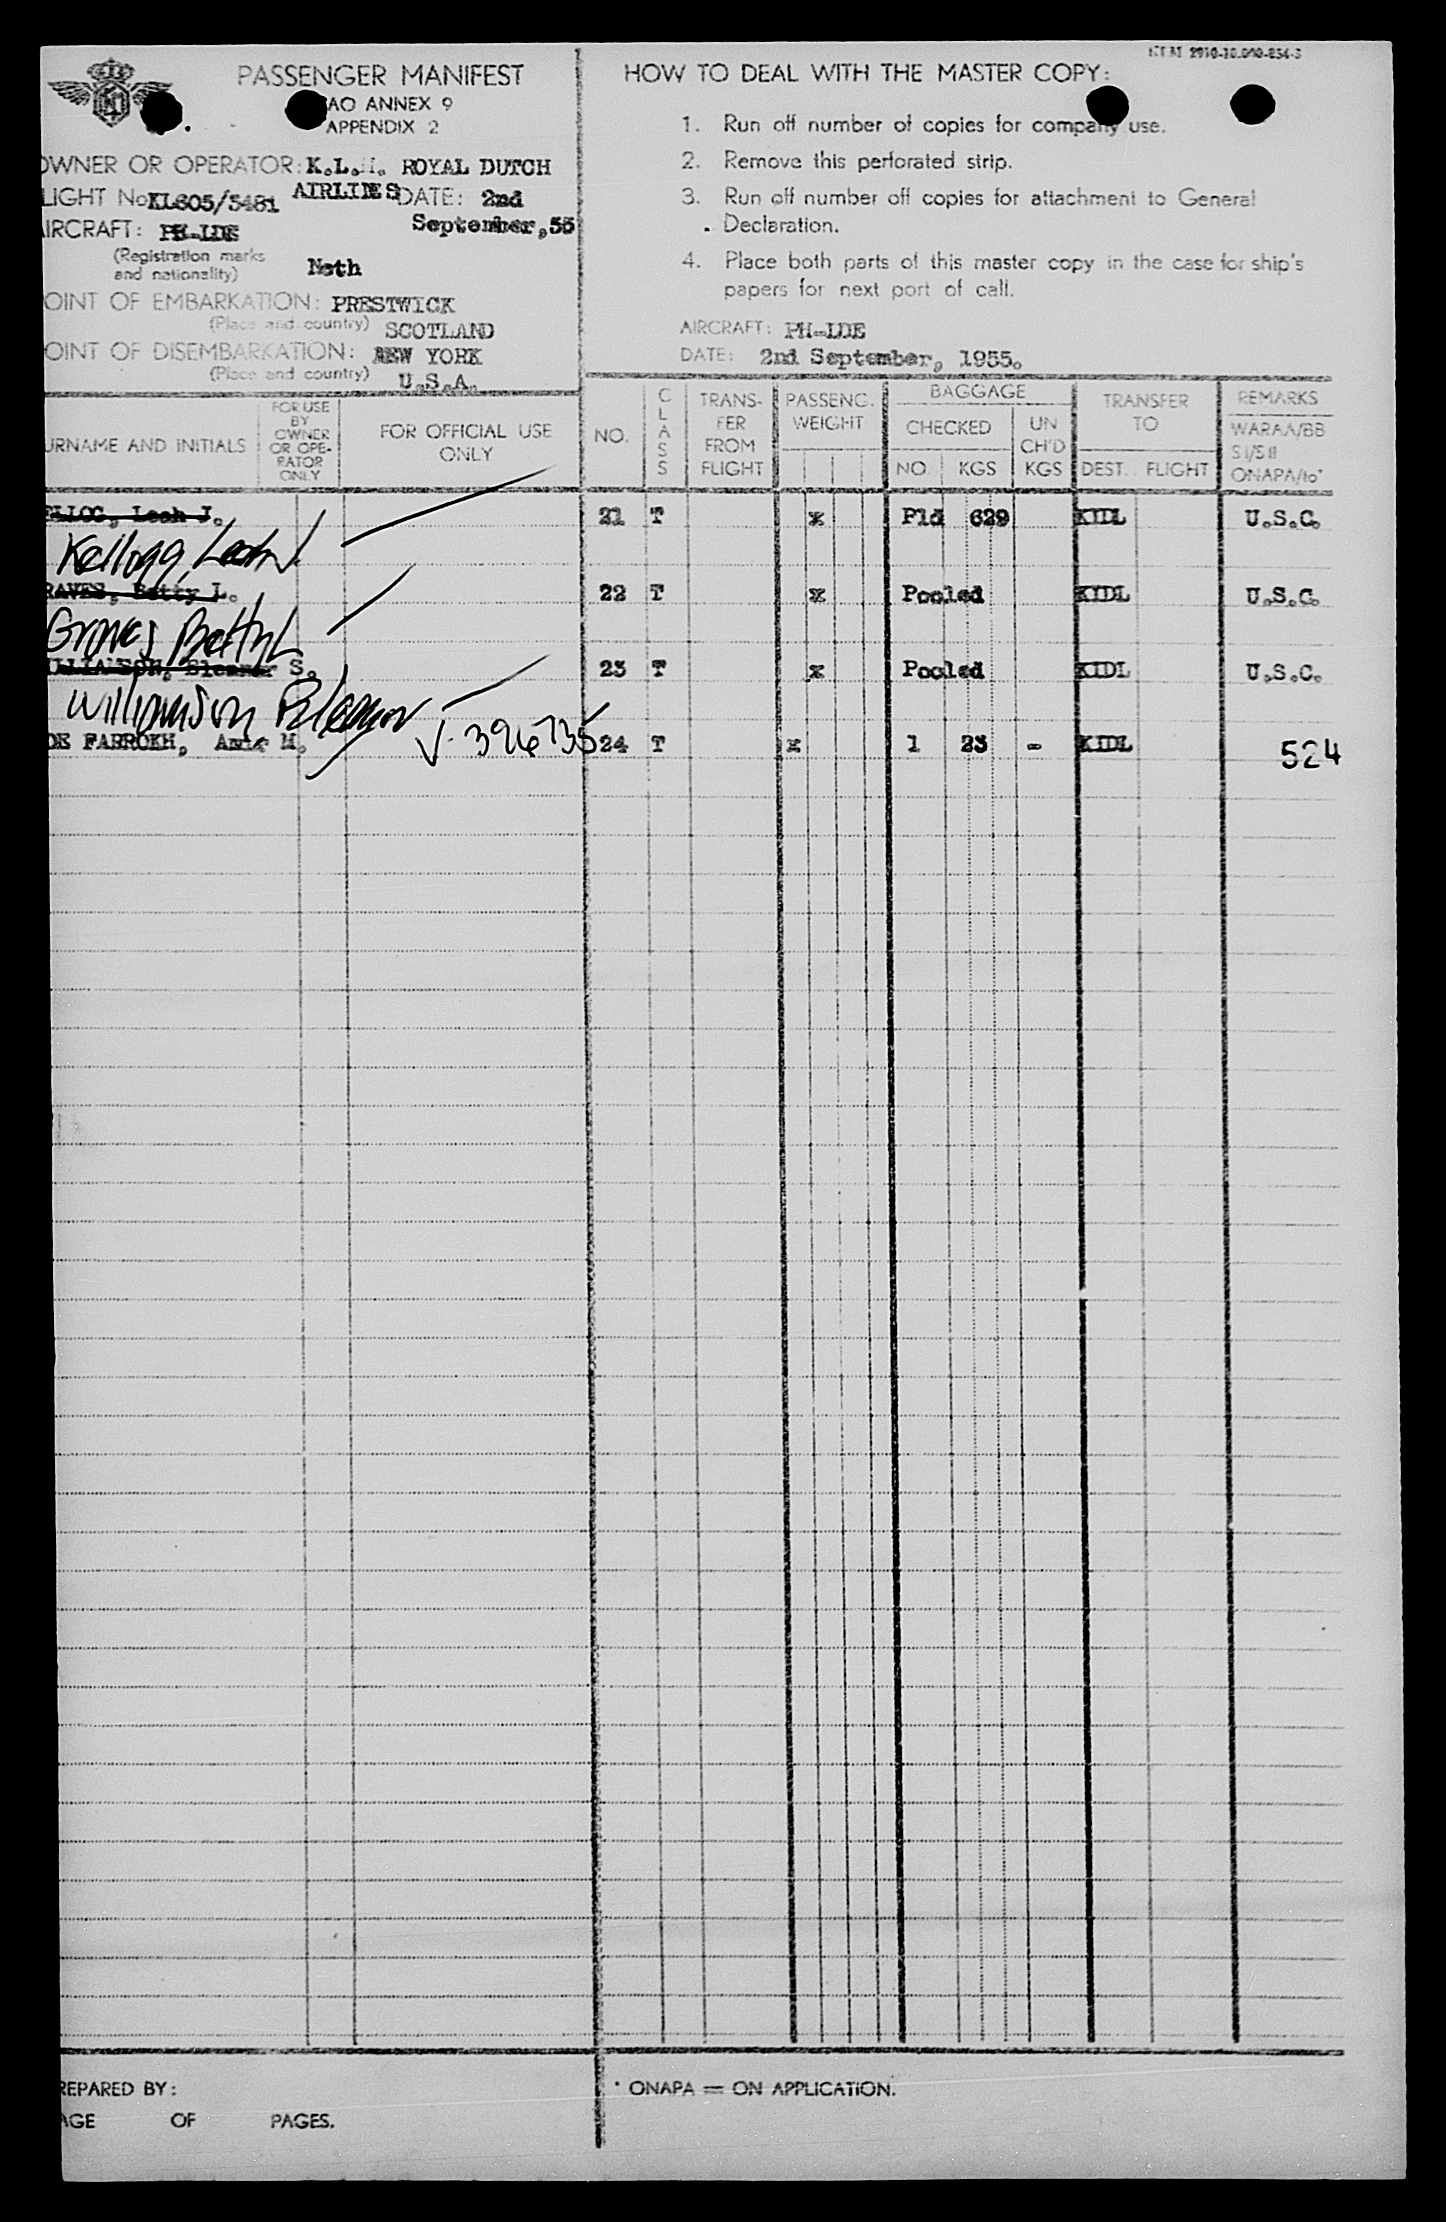 PASSENGER MANIFEST
AO ANNEX 9
APPENDIX 2
OWNER OR OPERATOR: K.L.M. ROYAL DUTCH
AIRLINES
LIGHT No KL605/5481 DATE: 2nd
September,55
AIRCRAFT: PH-LDE
(Registration marks
and nationality) Neth
OINT OF EMBARKATION: PRESTWICK
(Place and country) SCOTLAND
OINT OF DISEMBARKATION: NEW YORK
(Place and country) U.S.A.
HOW TO DEAL WITH THE MASTER COPY:
1. Run off number of copies for company use.
2. Remove this perforated strip.
3. Run off number off copies for attachment to General
Declaration.
4. Place both parts of this master copy in the case for ship's
papers for next port of call.
AIRCRAFT: PH-LDE
DATE: 2nd September, 1955.
URNAME AND INITIALS
FOR USE
BY
OWNER
OR OPE-
RATOR
ONLY
FOR OFFICIAL USE
ONLY
NO.
CLASS
TRANS-
FER
FROM
FLIGHT
PASSENG.
WEIGHT
BAGGAGE
CHECKED
NO. KGS
UN
CH'D
KGS
TRANSFER
TO
DEST. FLIGHT
REMARKS
WARAA/BB
S I/S II
ONAPA/to*
ELLOG, Leah J. 21 T x Pld 629 KIDL U.S.C.
Kellogg, Leah J
RAVES, Betty L. 22 T x Pooled KIDL U.S.C.
Graves Betty L
ILLIAMSON, Eleanor S. 23 T x Pooled KIDL U.S.C.
Williamson Eleanor
DE FARROKH, M. V. 24 T x 1 23 - KIDL 524
REPARED BY:
AGE OF PAGES.
* ONAPA = ON APPLICATION.